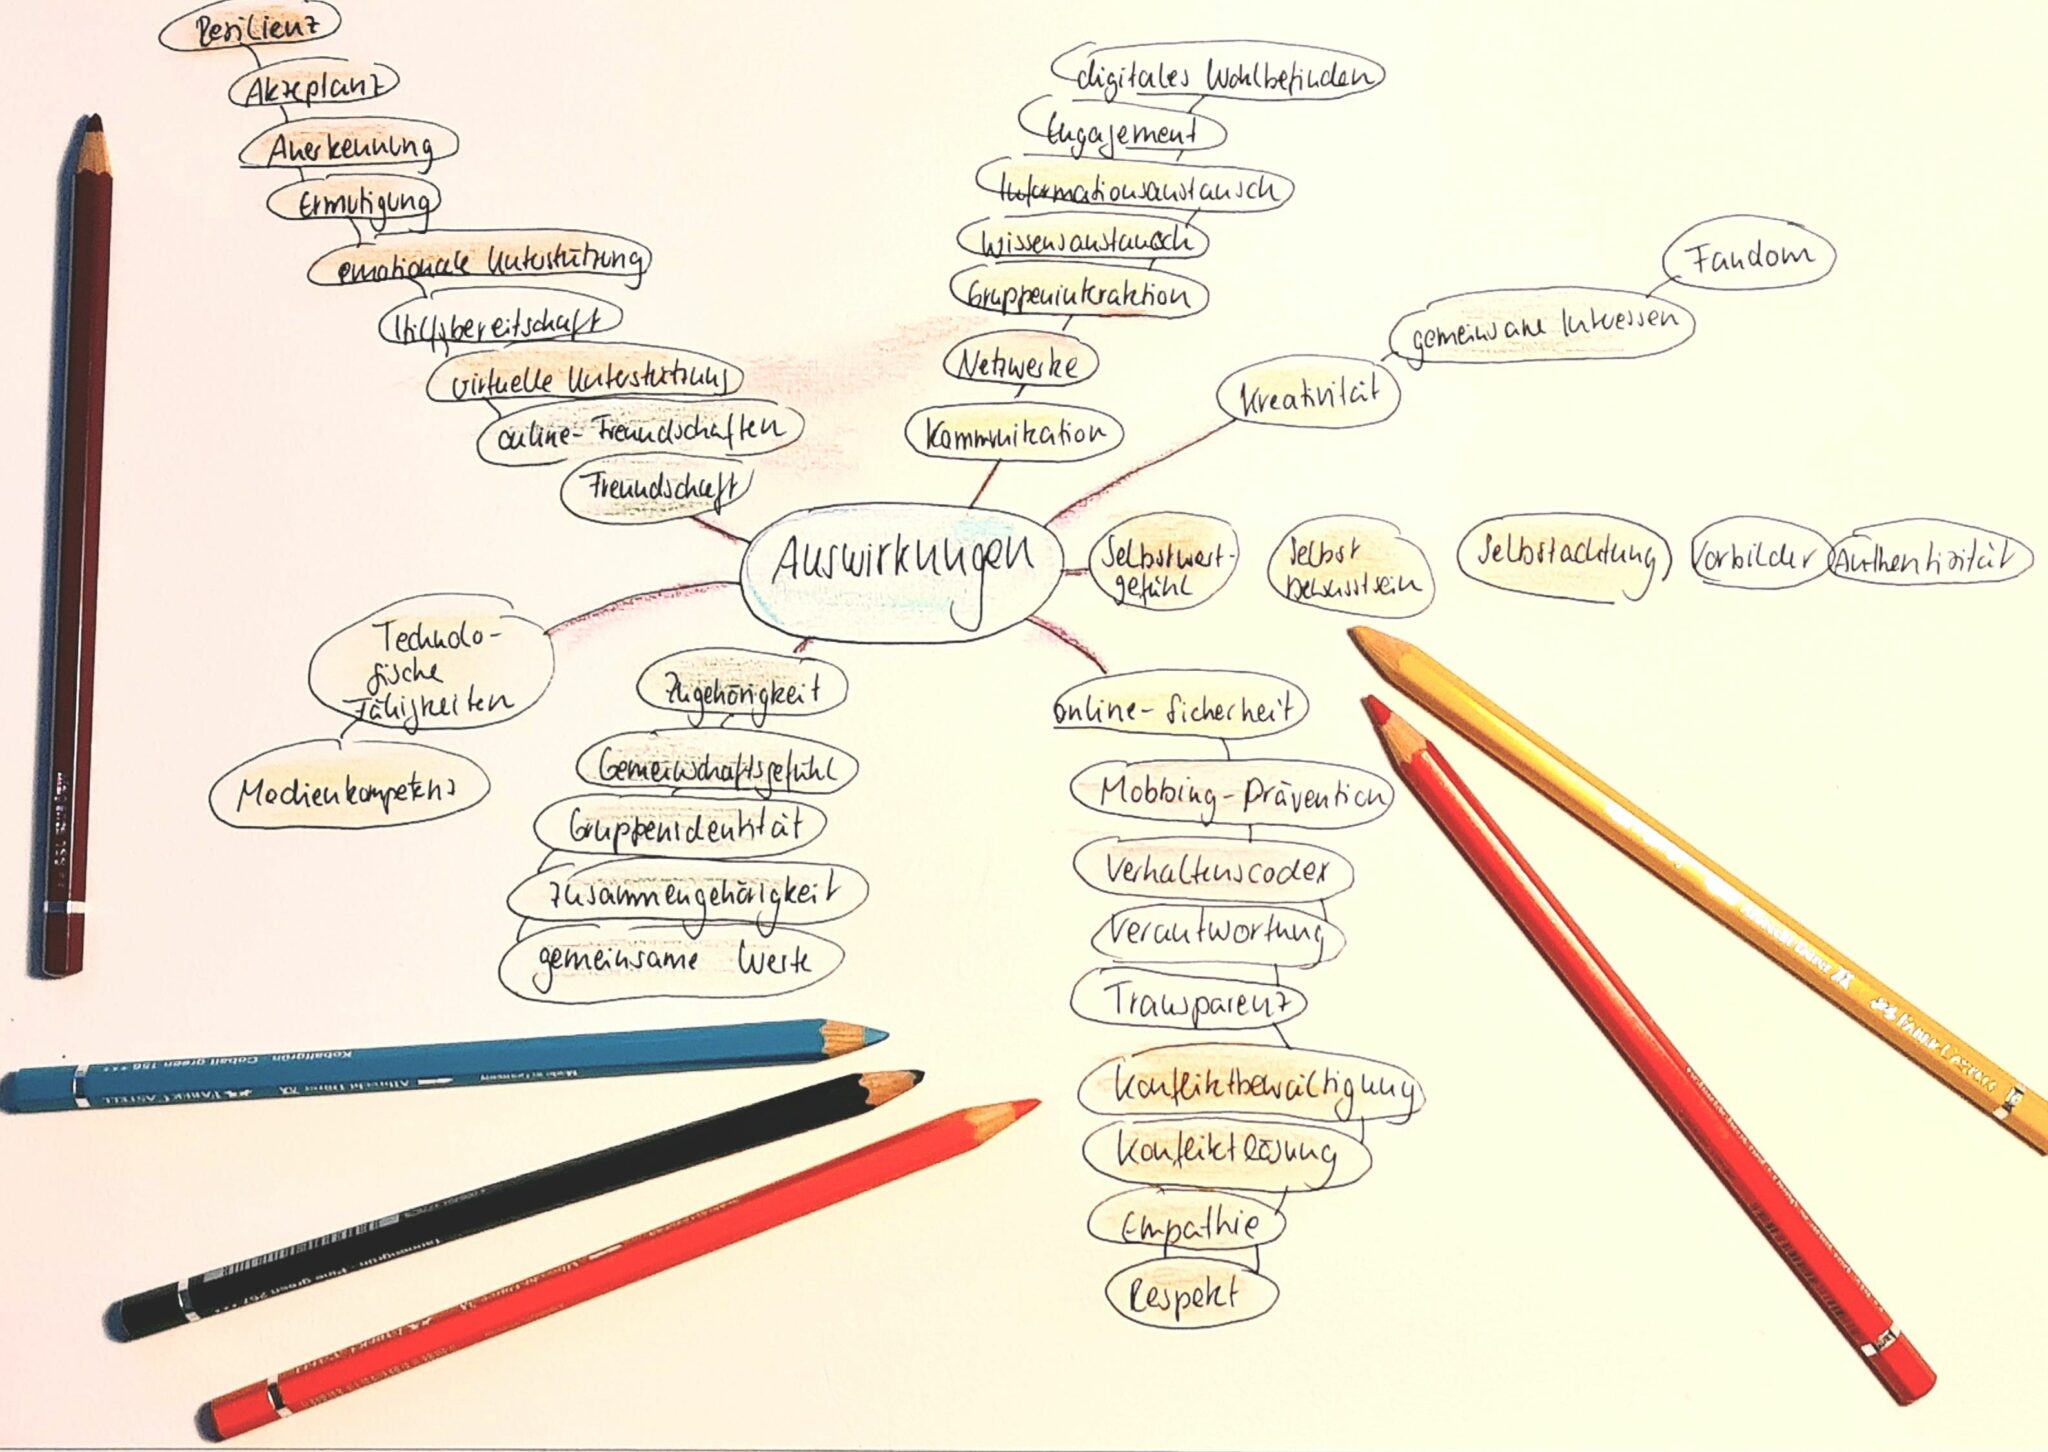 Resilienz
Akzeptanz
Anerkennung
Ermutigung
emotionale Unterstützung
Hilfsbereitschaft
virtuelle Unterstützung
online-Freundschaften
Freundschaft
digitales Wohlbefinden
Engagement
Informationsaustausch
Wissensaustausch
Gruppeninteraktion
Netzwerke
Kommunikation
Fandom
gemeinsame Interessen
Kreativität
Auswirkungen
Selbstwert-
gefühl
Selbst
bewusstsein
Selbstachtung
Vorbilder
Authentizität
Technolo-
gische
Fähigkeiten
Medienkompetenz
Zugehörigkeit
Gemeinschaftsgefühl
Gruppenidentität
Zusammengehörigkeit
gemeinsame Werte
online-Sicherheit
Mobbing-Prävention
Verhaltenscodex
Verantwortung
Transparenz
Konfliktbewältigung
Konfliktlösung
Empathie
Respekt
Kobaltgrün · Cobalt green 156 ***
Made in Germany Albrecht Dürer FABER CASTELL
Pine green 267 ***